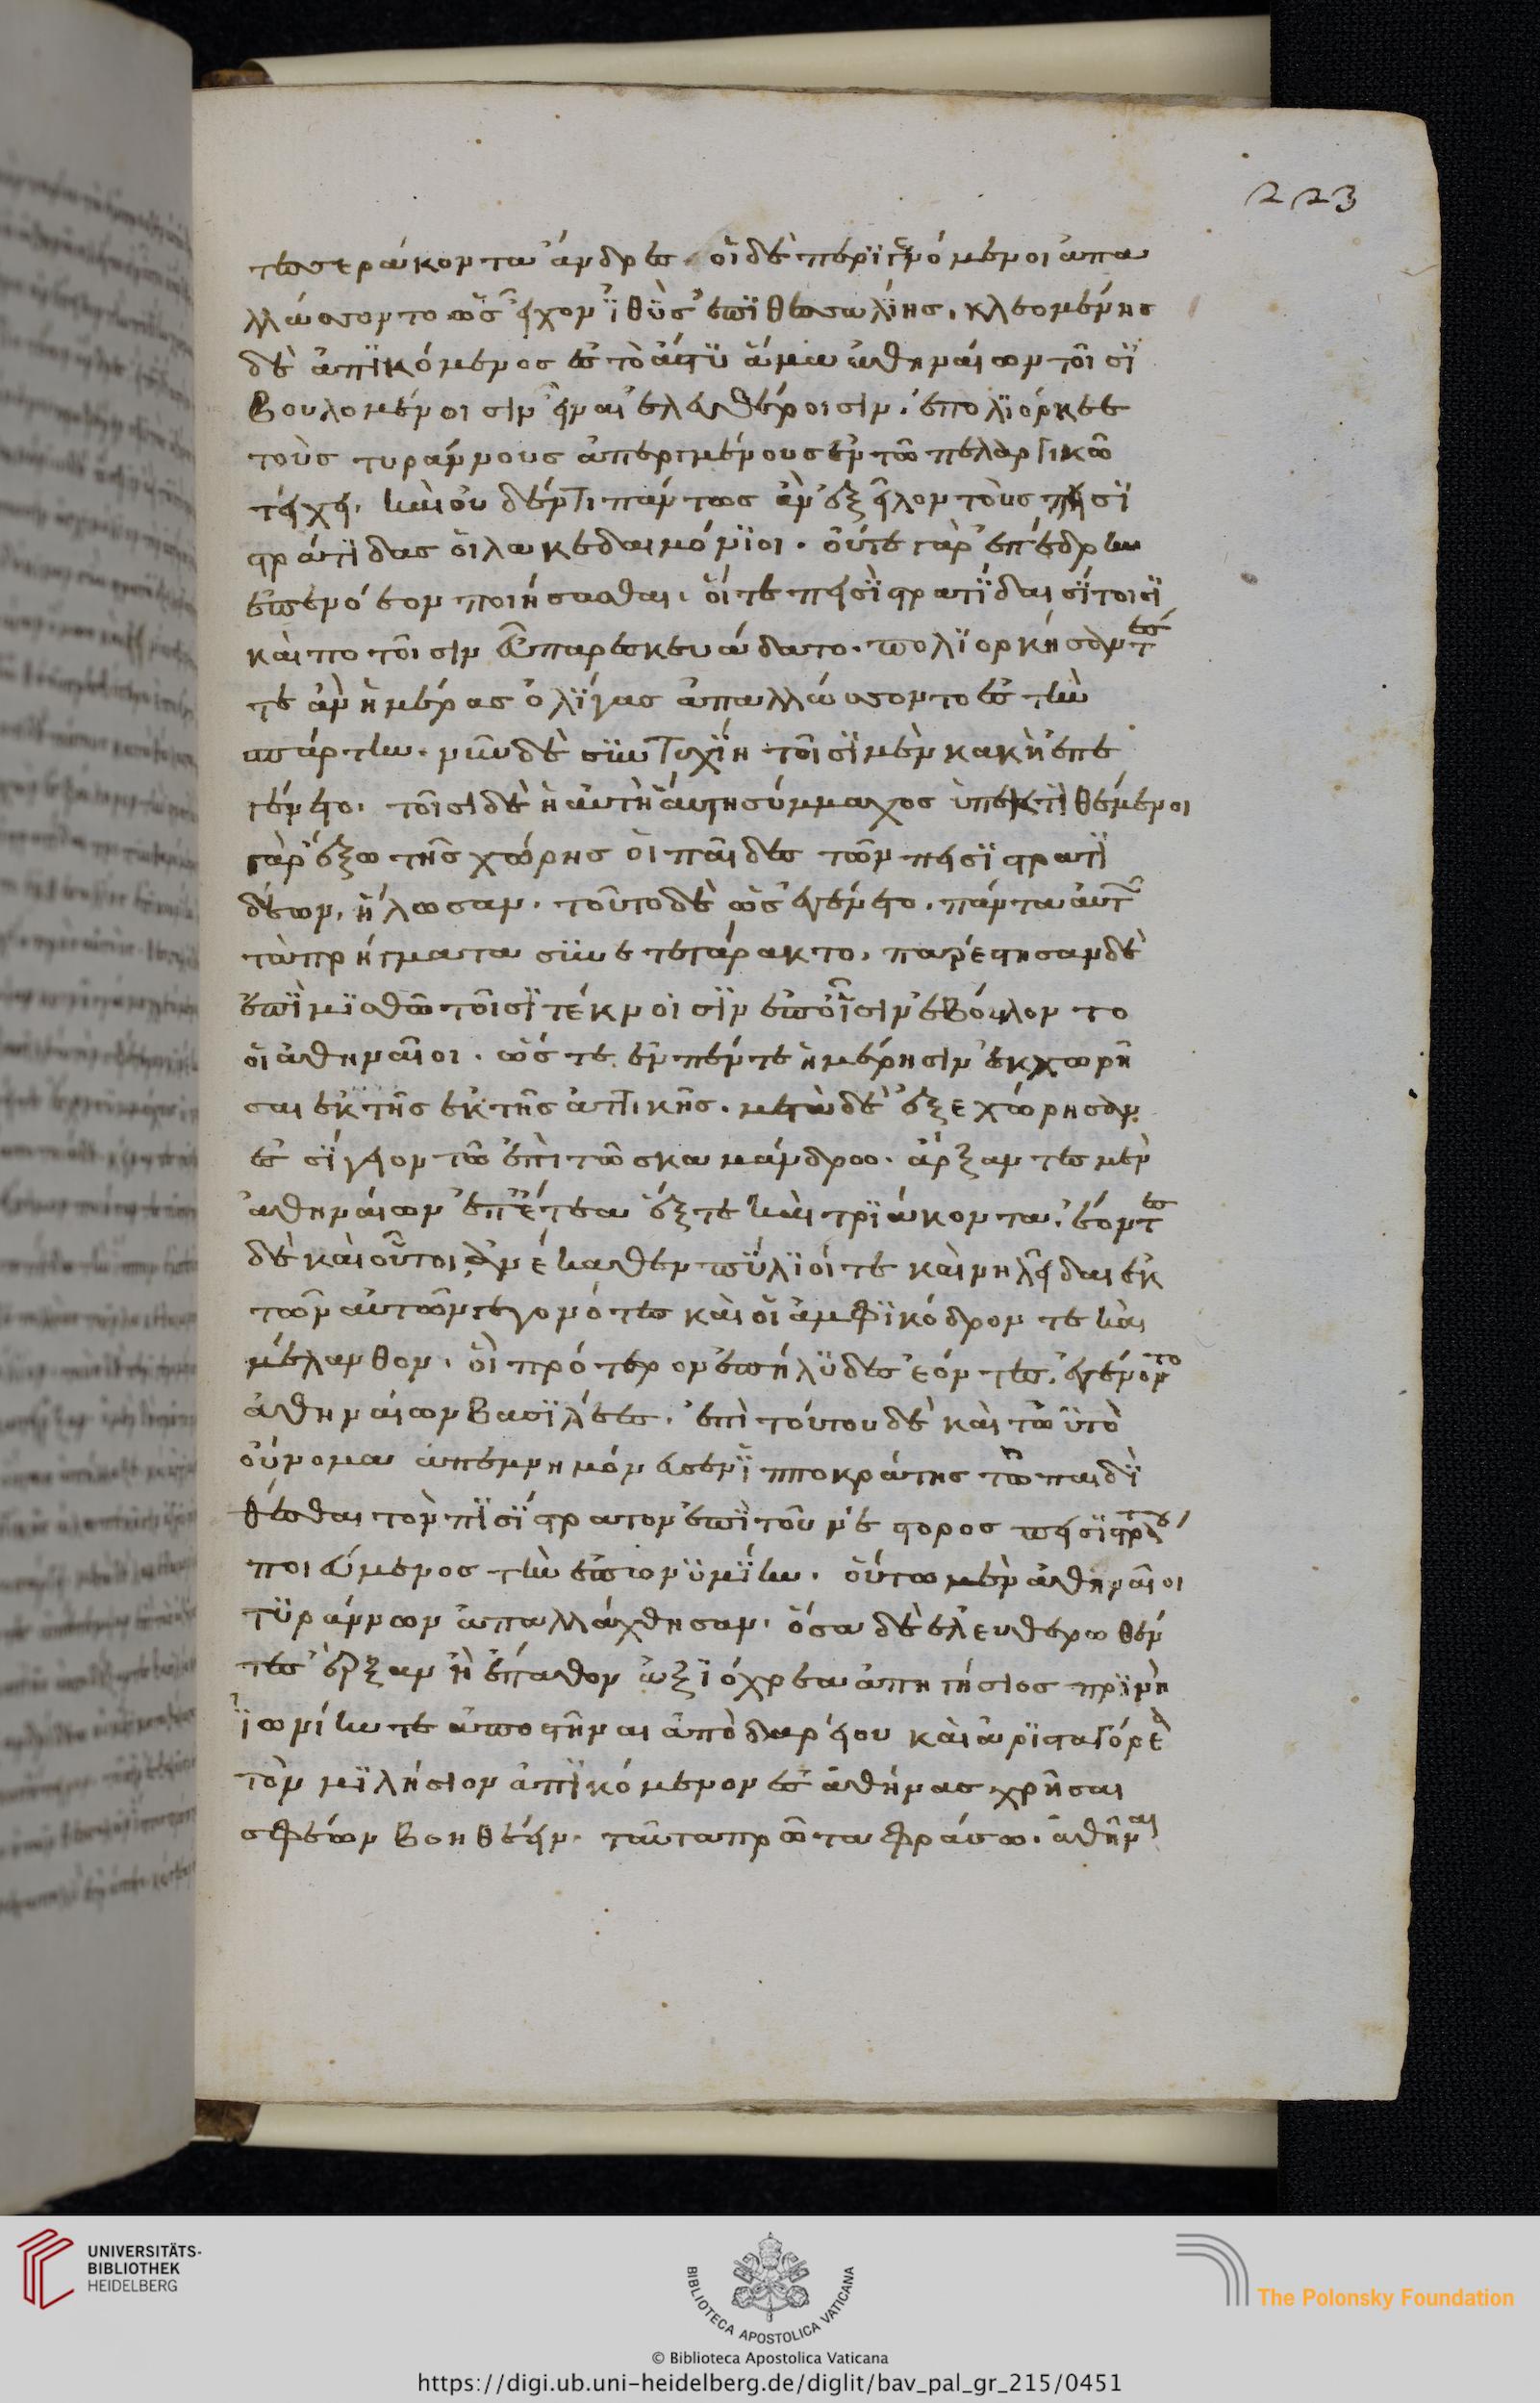 223
τεσσεράκοντα ἄνδρες. οἱ δὲ περιγενόμενοι ἀπα
λλάσσοντο ὡς εἶχον ἰθὺς ἐπὶ θεσσαλίης. κλεομένης
δὲ ἀπικόμενος ἐς τὸ ἄστυ ἅμα ἀθηναίων τοῖσι
βουλομένοισιν εἶναι ἐλευθέροισιν. ἐπολιόρκεε
τοὺς τυράννους ἀπεργμένους ἐν τῶ πελαργικῶ
τείχει. καὶ οὐδέν τι πάντως ἂν ἐξεῖλον τοὺς πεισι
στρατίδας οἱ λακεδαιμόνιοι. οὔτε γὰρ ἐπέδρην
ἐπενόεον ποιήσασθαι. οἵ τε πεισιστρατίδαι σίτοισι
καὶ ποτοῖσιν εὖ παρεσκευάδατο. πολιορκήσαντές
τε ἂν ἡμέρας ὀλίγας ἀπαλλάσσοντο ἐς τὴν
σπάρτην. νῦν δὲ συντυχίη τοῖσι μὲν κακὴ ἐπε
γένετο. τοῖσι δὲ ἡ αὐτὴ αὕτη σύμμαχος ὑπεκτιθέμενοι
γὰρ ἔξω τῆς χώρης οἱ παῖδες τῶν πεισιστρατι
δέων, ἥλωσαν. τοῦτο δὲ ὡς ἐγένετο. πάντα αὐτῶν
τὰ πρήγματα συνετετάρακτο. παρέστησαν δὲ
ἐπὶ μισθῶ τοῖσι τέκνοισιν ἐπ' οἷσιν ἐβούλοντο
οἱ ἀθηναῖοι. ὥστε ἐν πέντε ἡμέρησιν ἐκχωρῆ
σαι ἐκ τῆς ἐκ τῆς ἀττικῆς. μετὰ δὲ ἐξεχώρησαν
ἐς σίγειον τῶ ἐπὶ τῶ σκαμάνδρω. ἄρξαντες μὲν
ἀθηναίων ἐπ' ἔτεα ἕξ τε καὶ τριάκοντα. ἐόντες
δὲ καὶ οὗτοι ἀνέκαθεν πύλιοί τε καὶ νηλεῖδαι ἐκ
τῶν αὐτῶν γεγονότες καὶ οἱ ἀμφὶ κόδρον τε καὶ
μέλανθον. οἳ πρότερον ἐπήλυδες ἐόντες, ἐγένοντο
ἀθηναίων βασιλέες. ἐπὶ τούτου δὲ καὶ τὠυτὸ
οὔνομα ἀπεμνημόνευσεν ἱπποκράτης τῶ παιδὶ
θέσθαι τὸν πισίστρατον ἐπὶ τοῦ νέστορος πεισιστράτου
ποιεύμενος τὴν ἐπωνυμίην. οὕτω μὲν ἀθηναῖοι
τυράννων ἀπαλλάχθησαν. ὅσα δὲ ἐλευθερωθέν
τες ἔρξαν ἢ ἔπαθον ἀξιόχρεα ἀπηγήσιος πρὶν ἢ
ἰωνίην τε ἀποστῆναι ἀπὸ δαρείου καὶ ἀρισταγόρεα
τὸν μιλήσιον ἀπικόμενον ἐς ἀθήνας χρῆσαι
σφέων βοηθέειν. ταῦτα πρῶτα φράσω. ἀθῆναι
UNIVERSITÄTS-
BIBLIOTHEK
HEIDELBERG
BIBLIOTECA APOSTOLICA VATICANA
The Polonsky Foundation
© Biblioteca Apostolica Vaticana
https://digi.ub.uni-heidelberg.de/diglit/bav_pal_gr_215/0451